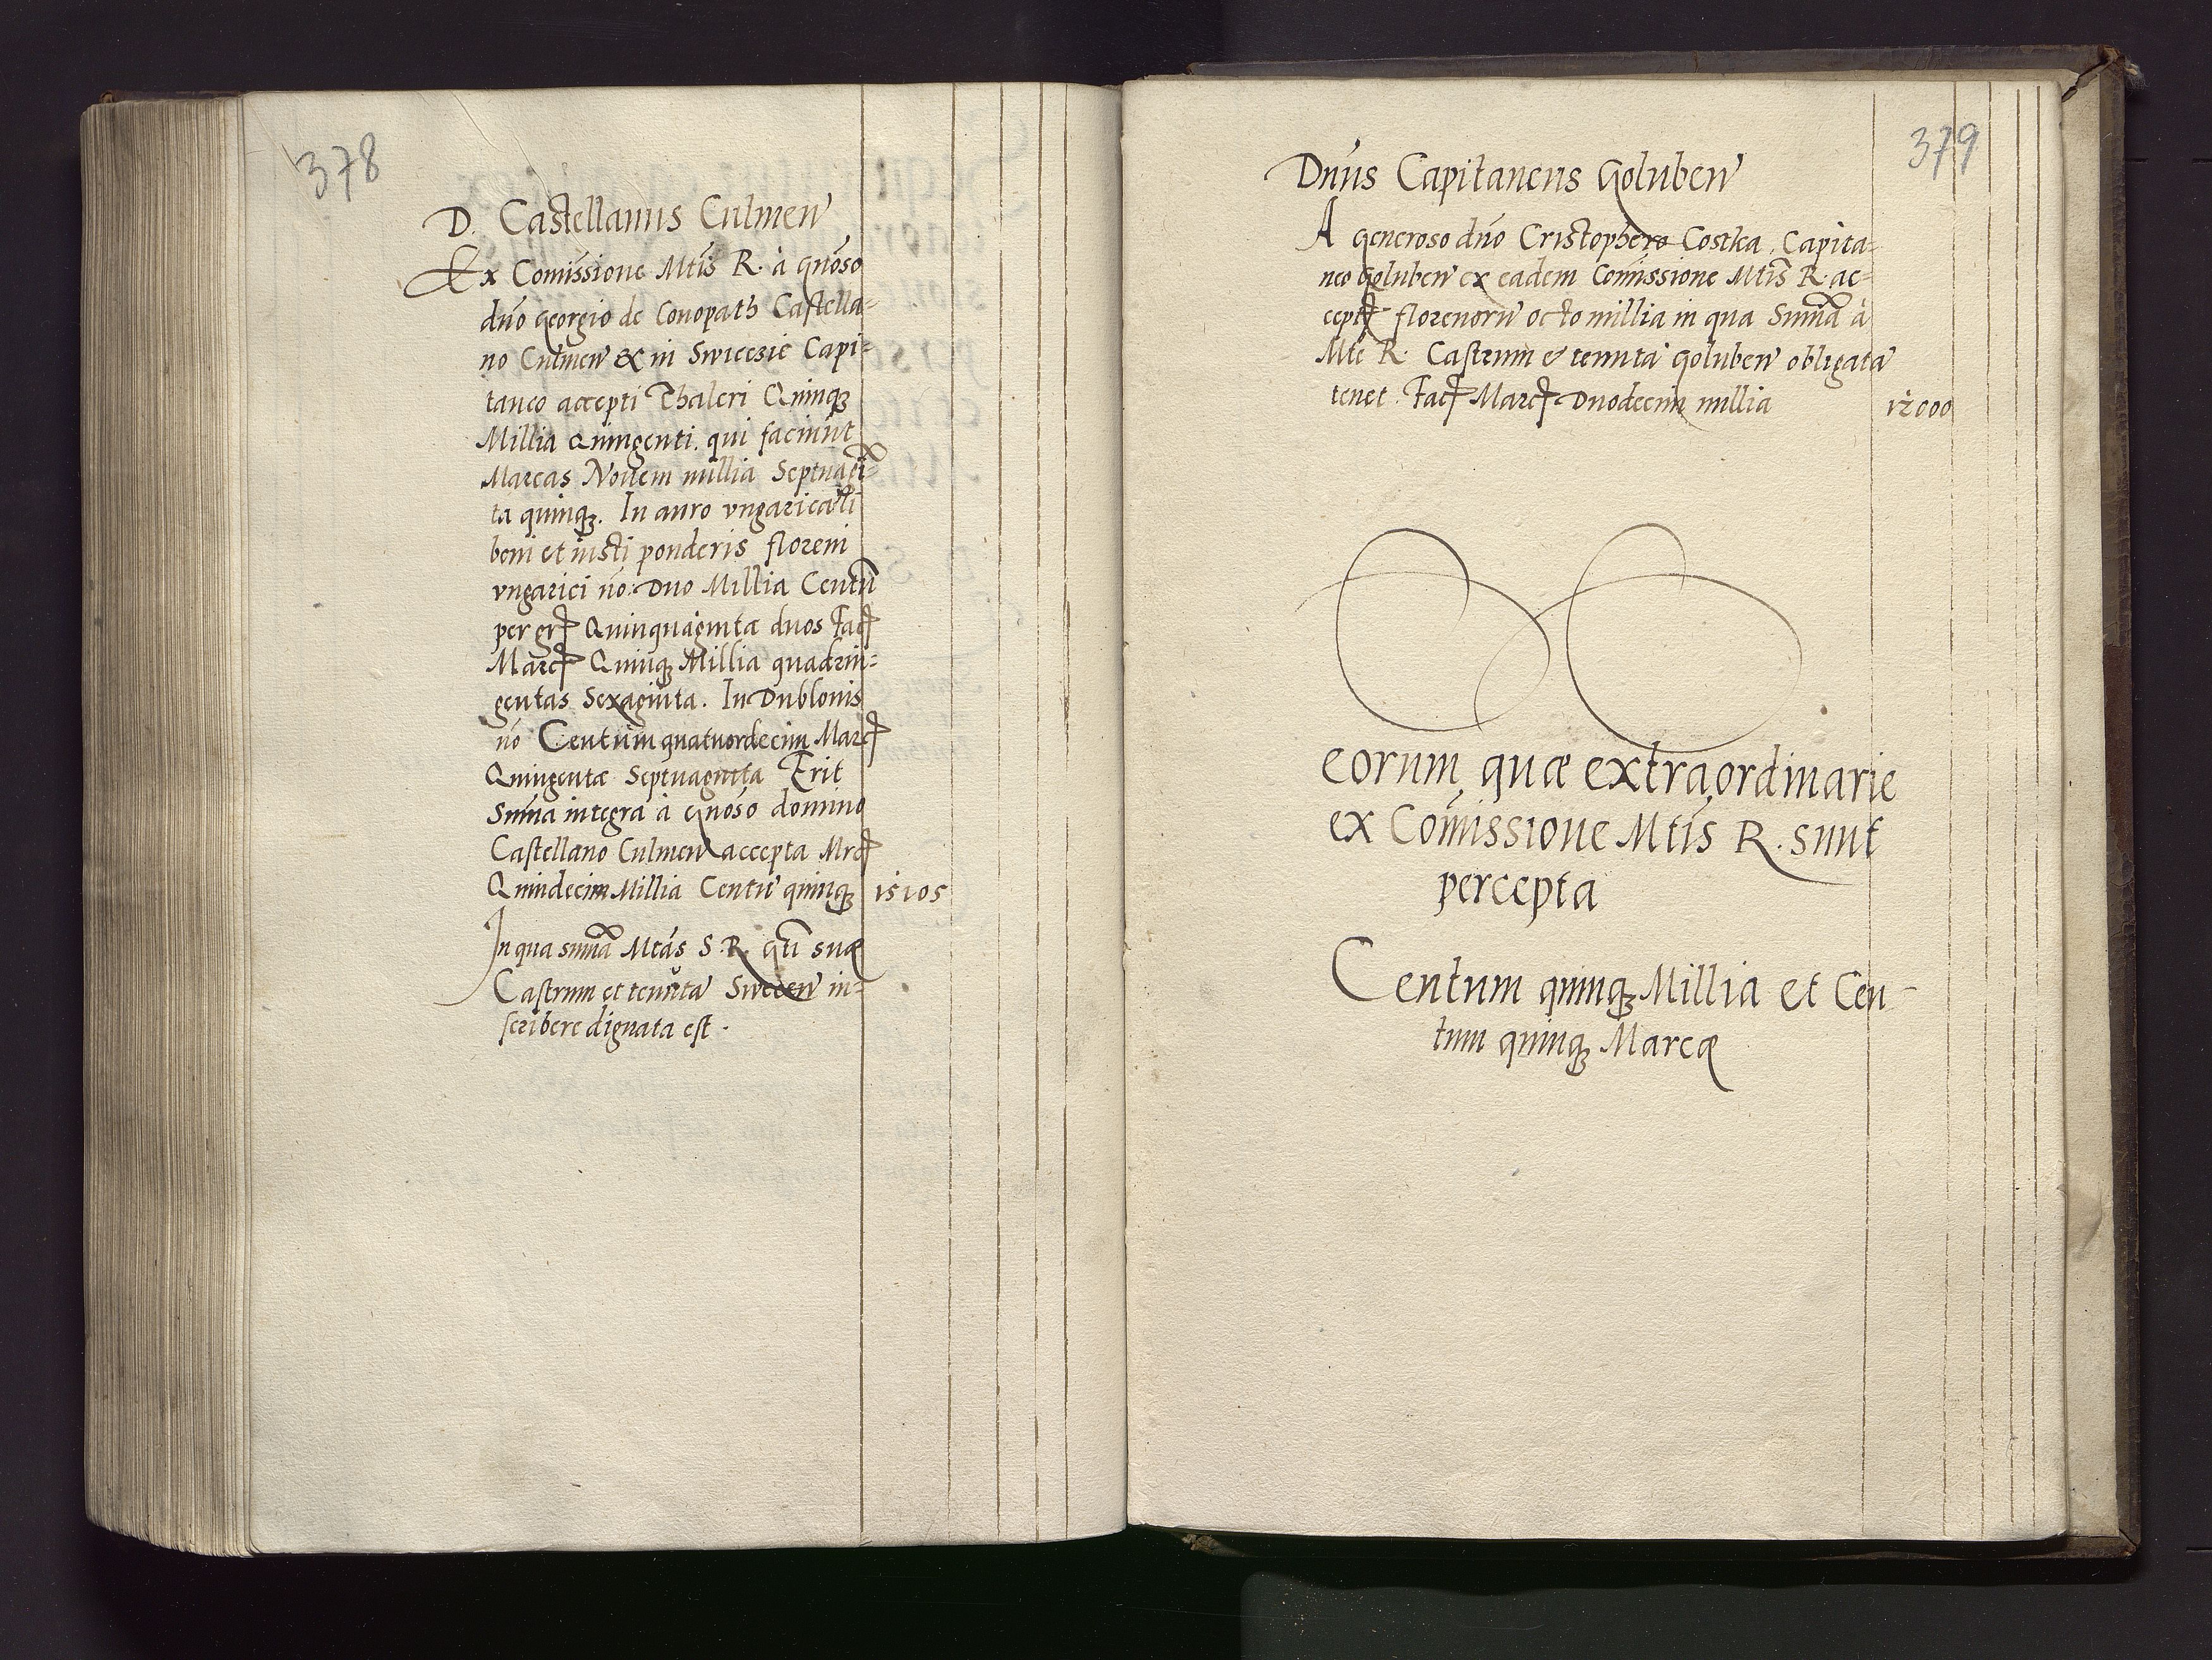 378
D. Castellanus Culmen̄
Ex Comissione Mtis R. à gnoso
dno Georgio de Conopath Castella=
no Culmen̄ & in Swieczie Capi=
taneo accepti Thaleri Quinq3
Millia Quingenti. qui faciunt
Marcas Nouem millia Septuagi=
ta quinq3. In auro vngaricali
boni et iusti ponderis floreni
vngarici no: Duo Millia Centū
per gr Quinquaginta duos Fac
Marc Quinq3 Millia quadrin=
gentas Sexaginta. In Dublonis
no Centum quatuordecim Marc
Quingentæ Septuaginta Erit
Suma integra à gnoso domino
Castellano Culmen̄ accepta Mrc
Quindecim Millia Centū quinq3 15105
In qua suma Mtas S. R. Gti suæ
Castrum et tenuta Swecen̄ in=
scribere dignata est.
379
Dnus Capitaneus Goluben̄
A generoso dno Cristophero Costka Capita=
neo Goluben̄ ex eadem Comissione Mtis R. ac=
cept florenorū octo millia in qua Suma à
Mte R. Castrum & tenuta Goluben̄ obligata
tenet. Fac Marc Duodecim millia 12000
eorum quæ extraordinarie
ex Comissione Mtis R. sunt
percepta
Centum quinq3 Millia et Cen-
tum quinq3 Marcæ